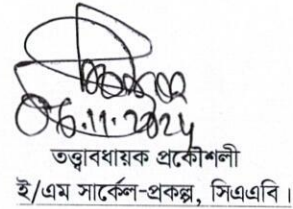 06.11.2024
তত্ত্বাবধায়ক প্রকৌশলী
ই/এম সার্কেল-প্রকল্প, সিএএবি।